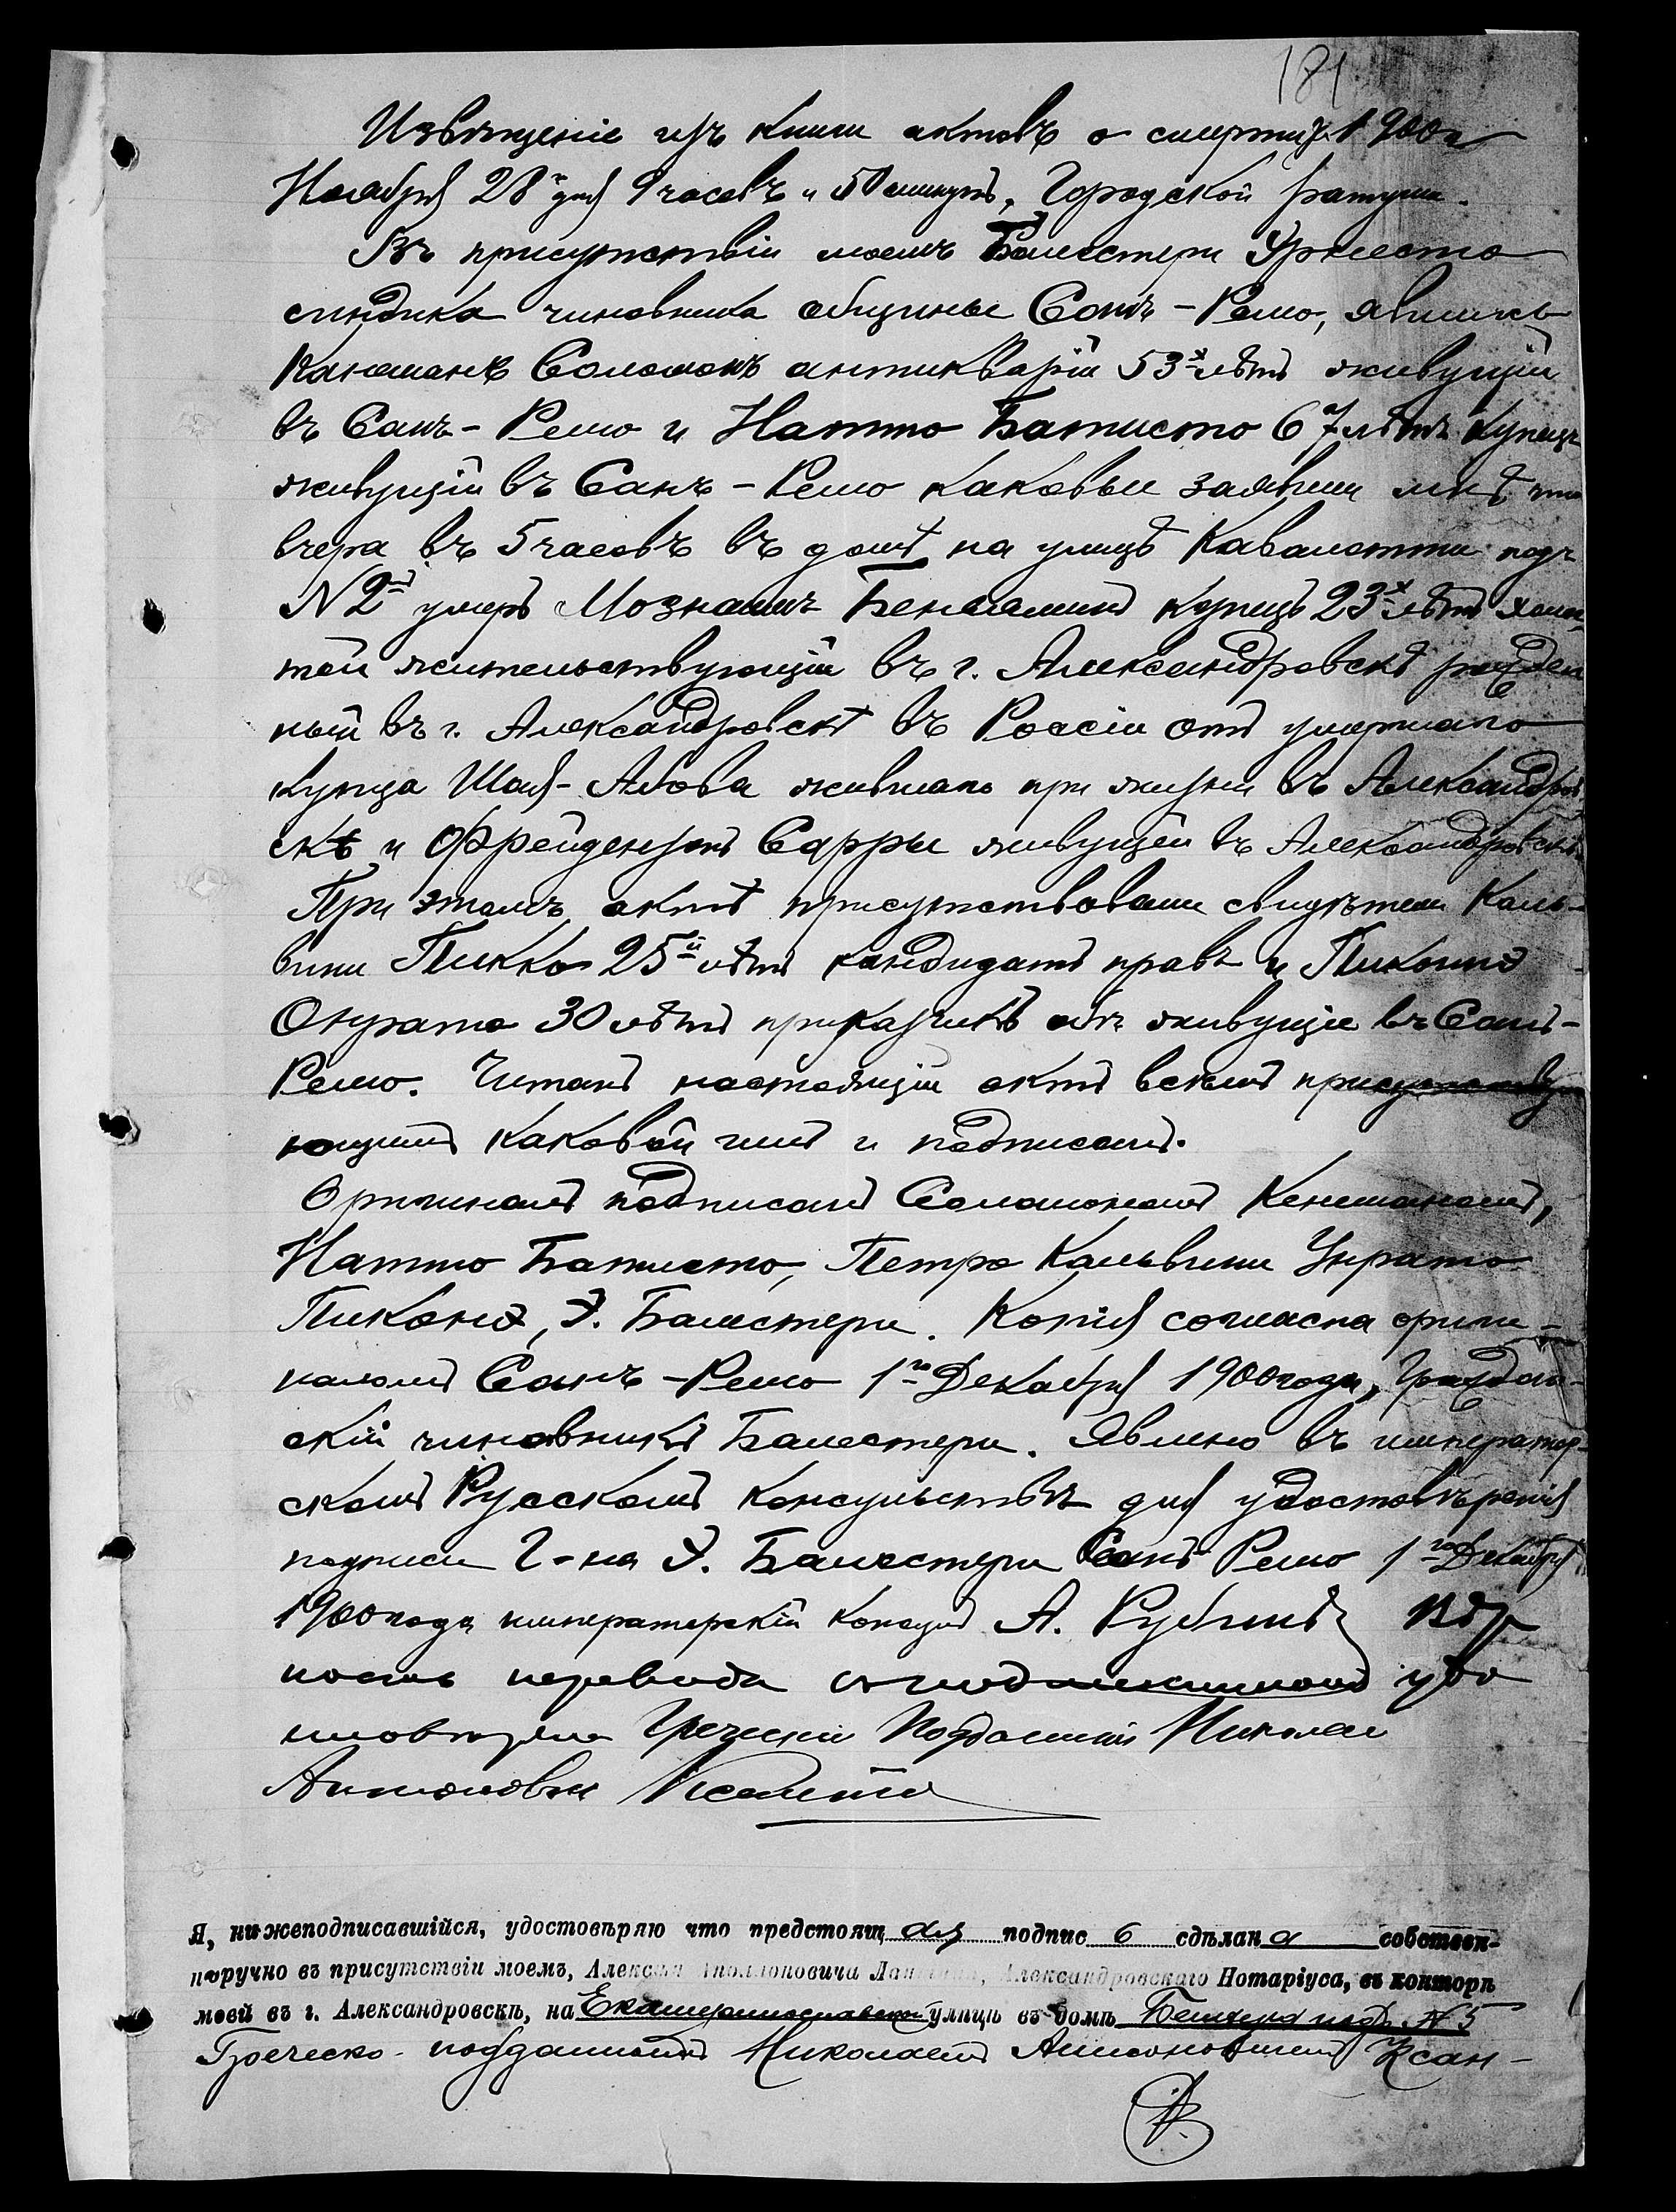 181
Извѣщеніе изъ книги актовъ о смерти, 1900 г.
Ноября 28 дня 9 часовъ и 50 минутъ, Городской ратуши.
Въ присутствіи моемъ Балестери Эрнесто
синдика чиновника общины Санъ-Ремо, явились
Соломонъ антикварій 53х лѣтъ живущій
въ Санъ-Ремо и Натто Батисто 67 лѣтъ купецъ
живущій въ Санъ-Ремо каковые заявили мнѣ что
вчера въ 5 часовъ въ домѣ на улицѣ Кавалотти подъ
N 2й умеръ Мознаимъ Беньяминъ купецъ 23х лѣтъ холос-
той жительствующій въ г. Александровскѣ рожден
ный въ г. Александровскѣ въ Россіи отъ умершаго
купца Шая-Абова жившаго при жизни въ Александров
скѣ и Фрейдензонъ Сарры живущей въ Александровскѣ.
При этомъ актѣ присутствовали свидѣтели Каль-
вини Пикко 25й лѣтъ кандидатъ правъ и Пиконэ
Онрато 30 лѣтъ приказчикъ оба живущіе въ Санъ-
Ремо. Читанъ настоящій актъ всѣмъ присутству
ющимъ каковой ими и подписанъ.
Оригиналъ подписанъ Соломономъ Кенманомъ,
Натто Батисто, Петро Кальвини Унрато
Пиконэ, Э. Балестери. Копія согласна ориги-
наломъ Санъ-Ремо 1го Декабря 1900 года, Граждан-
скій чиновникъ Балестери. Явлено въ император-
скомъ Русскомъ консульствѣ для удостовѣренія
подписи Г-на Э. Балестери Санъ Ремо 1го Декабря
1900 года императорскій консулъ А. Рубинъ Вѣр
ность перевода съ подлинникомъ удо
стовѣряю Греческій Подданный Николай
Антоновъ
Я, нижеподписавшійся, удостовѣряю что предстоящ ая подпис ь сдѣлан а собствен-
норучно въ присутствіи моемъ, Алексѣя Аполлоновича Александровскаго Нотаріуса, въ конторѣ
моей въ г. Александровскѣ, на Екатеринославской улицѣ въ домѣ подъ № 5
Греческо-подданнымъ Николаемъ Антоновичемъ Ксан-